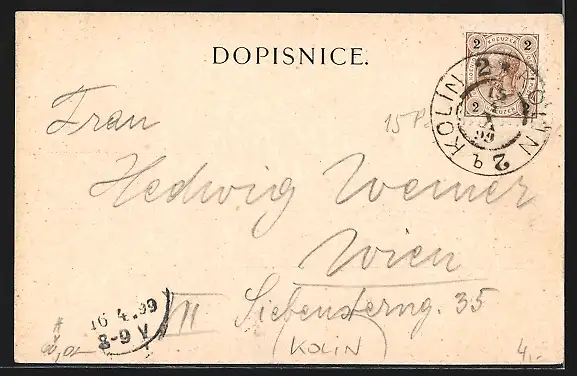 DOPISNICE.
2 KREUZER 2
2 KREUZER 2
KOLIN KOLIN
15
4
99
2 b
15 P
Frau
Hedwig Werner
Wien
VII Siebensterng. 35
16.4.99
8-9 V
(KOLIN)
4,-